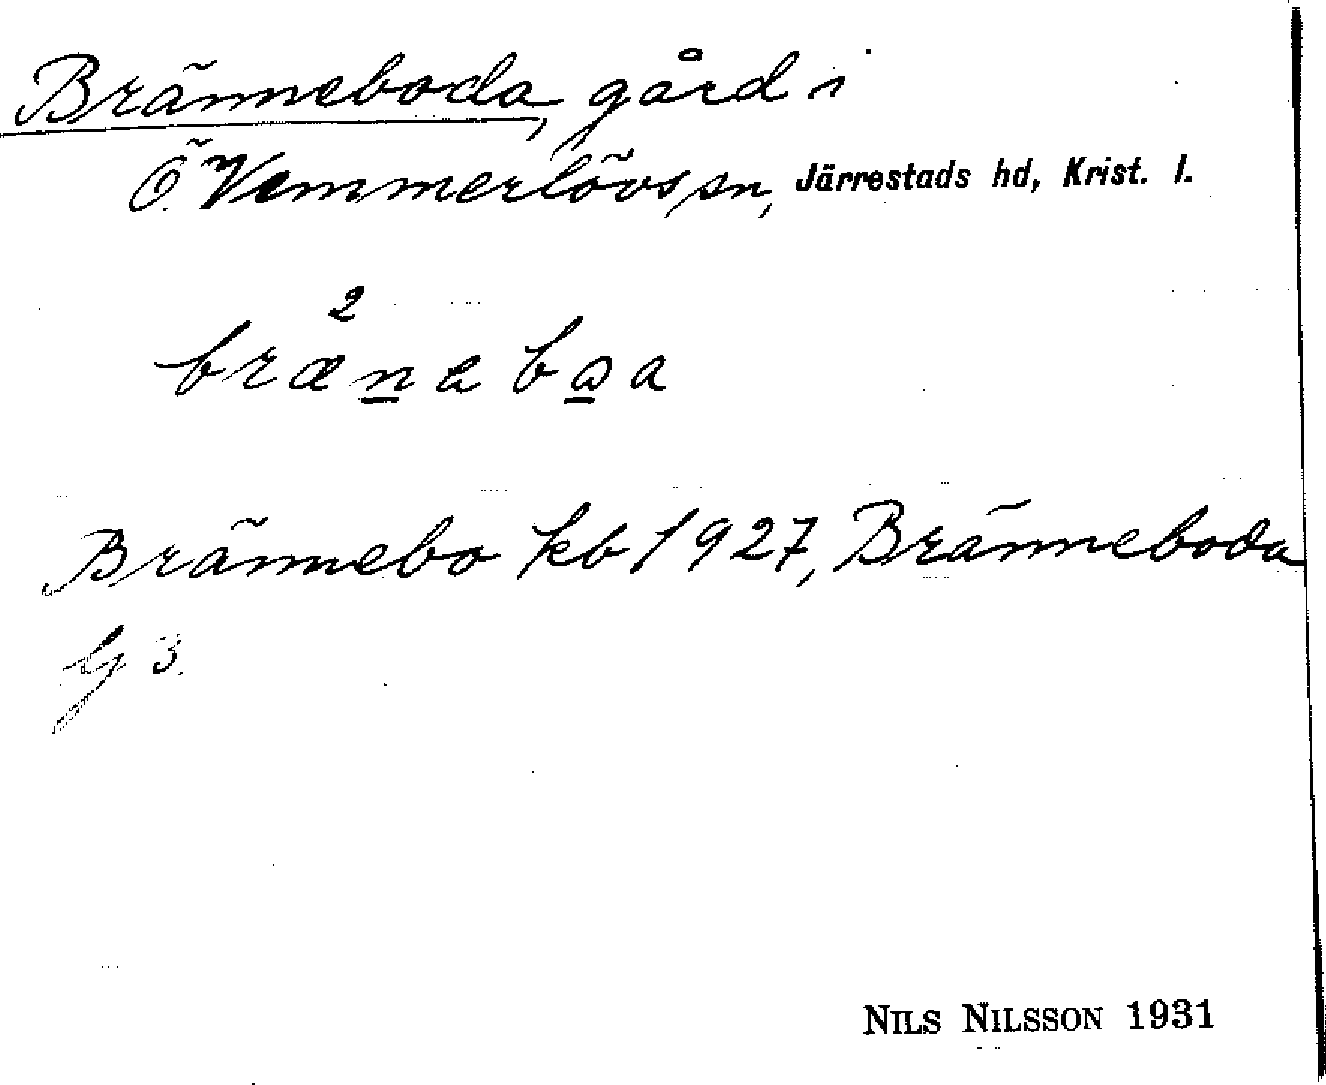 Bränneboda, gård i
Ö. Vemmerlövs sn, Järrestads hd, Krist. l.
2
brænabωa
Brännebo kb 1927, Bränneboda
Gj 3.
NILS NILSSON 1931